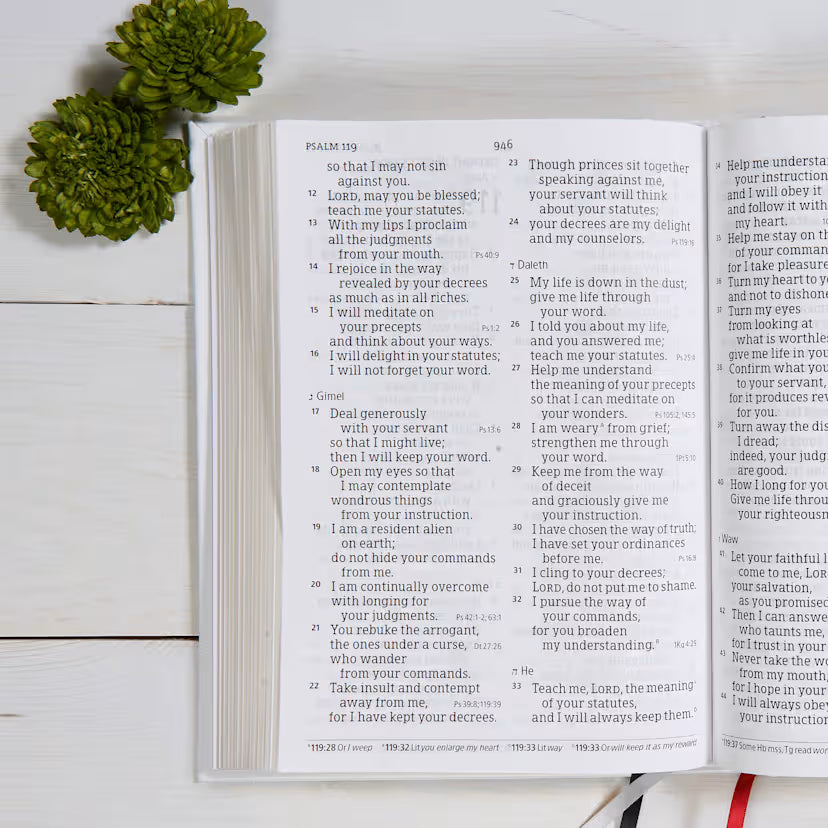 PSALM 119
946
so that I may not sin
against you.
12 LORD, may you be blessed;
teach me your statutes.
13 With my lips I proclaim
all the judgments
from your mouth. Ps 40:9
14 I rejoice in the way
revealed by your decrees
as much as in all riches.
15 I will meditate on
your precepts Ps 1:2
and think about your ways.
16 I will delight in your statutes;
I will not forget your word.
ג Gimel
17 Deal generously
with your servant Ps 13:6
so that I might live;
then I will keep your word.
18 Open my eyes so that
I may contemplate
wondrous things
from your instruction.
19 I am a resident alien
on earth;
do not hide your commands
from me.
20 I am continually overcome
with longing for
your judgments. Ps 42:1-2; 63:1
21 You rebuke the arrogant,
the ones under a curse, Dt 27:26
who wander
from your commands.
22 Take insult and contempt
away from me, Ps 39:8; 119:39
for I have kept your decrees.
23 Though princes sit together
speaking against me,
your servant will think
about your statutes;
24 your decrees are my delight
and my counselors. Ps 119:16
ד Daleth
25 My life is down in the dust;
give me life through
your word.
26 I told you about my life,
and you answered me;
teach me your statutes. Ps 25:4
27 Help me understand
the meaning of your precepts
so that I can meditate on
your wonders. Ps 105:2; 145:5
28 I am weary from grief;
strengthen me through
your word. 1Pt 5:10
29 Keep me from the way
of deceit
and graciously give me
your instruction.
30 I have chosen the way of truth;
I have set your ordinances
before me. Ps 16:8
31 I cling to your decrees;
LORD, do not put me to shame.
32 I pursue the way of
your commands,
for you broaden
my understanding. 1Kg 4:29
ה He
33 Teach me, LORD, the meaning
of your statutes,
and I will always keep them.
119:28 Or I weep 119:32 Lit you enlarge my heart 119:33 Lit way 119:33 Or will keep it as my reward
34 Help me understa
your instruction
and I will obey it
and follow it with
my heart.
35 Help me stay on th
of your comman
for I take pleasure
36 Turn my heart to yo
and not to dishone
37 Turn my eyes
from looking at
what is worthles
give me life in you
38 Confirm what you
to your servant,
for it produces rev
for you.
39 Turn away the dis
I dread;
indeed, your judg
are good.
40 How I long for you
Give me life throu
your righteousn
ו Waw
41 Let your faithful l
come to me, LOR
your salvation,
as you promised
42 Then I can answe
who taunts me,
for I trust in your
43 Never take the wo
from my mouth,
for I hope in your
44 I will always obey
your instruction
119:37 Some Hb mss, Tg read wor